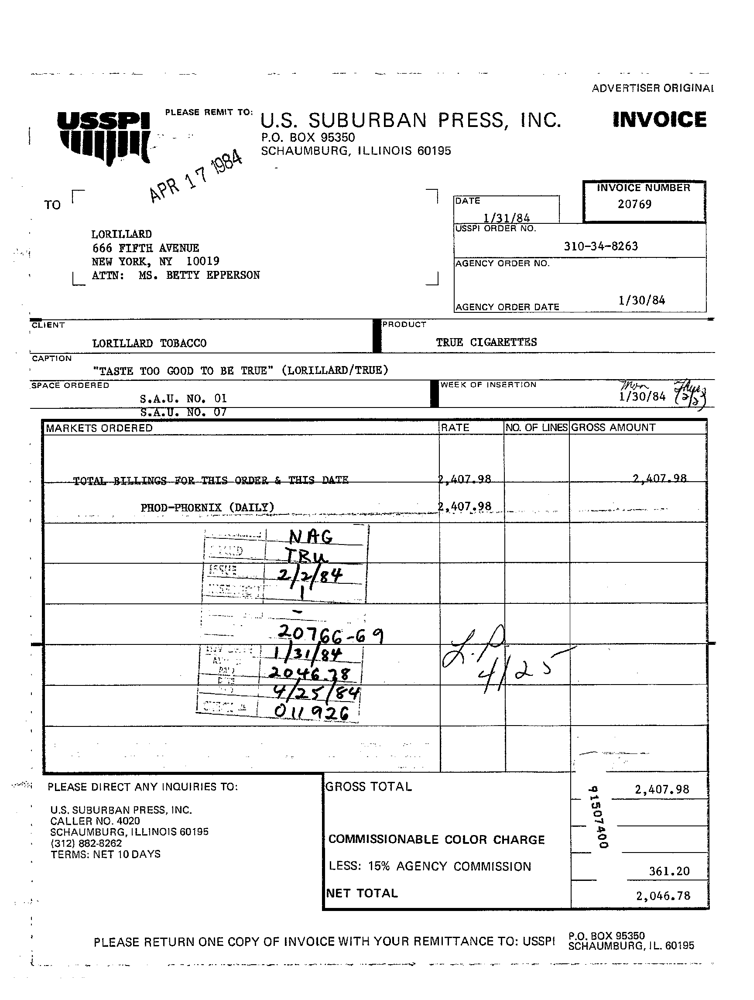 ADVERTISER ORIGINAL
USSPI
PLEASE REMIT TO:
U.S. SUBURBAN PRESS, INC.
P.O. BOX 95350
SCHAUMBURG, ILLINOIS 60195
INVOICE
APR 17 1984
TO
LORILLARD
666 FIFTH AVENUE
NEW YORK, NY 10019
ATTN: MS. BETTY EPPERSON
DATE
1/31/84
INVOICE NUMBER
20769
USSPI ORDER NO.
310-34-8263
AGENCY ORDER NO.
AGENCY ORDER DATE 1/30/84
CLIENT
LORILLARD TOBACCO
PRODUCT
TRUE CIGARETTES
CAPTION
"TASTE TOO GOOD TO BE TRUE" (LORILLARD/TRUE)
SPACE ORDERED
S.A.U. NO. 01
S.A.U. NO. 07
WEEK OF INSERTION
Mon Thurs
1/30/84 (2/2)
MARKETS ORDERED RATE NO. OF LINES GROSS AMOUNT
TOTAL BILLINGS FOR THIS ORDER & THIS DATE 2,407.98 2,407.98
PHOD-PHOENIX (DAILY) 2,407.98
NAG
TRU
ISSUE 2/2/84
1
-
20766-69
1/31/84
2046.78
4/25/84
011926
L.P.
4/25
PLEASE DIRECT ANY INQUIRIES TO:
U.S. SUBURBAN PRESS, INC.
CALLER NO. 4020
SCHAUMBURG, ILLINOIS 60195
(312) 882-8262
TERMS: NET 10 DAYS
GROSS TOTAL 2,407.98
COMMISSIONABLE COLOR CHARGE
LESS: 15% AGENCY COMMISSION 361.20
NET TOTAL 2,046.78
91507400
PLEASE RETURN ONE COPY OF INVOICE WITH YOUR REMITTANCE TO: USSPI P.O. BOX 95350
SCHAUMBURG, IL. 60195